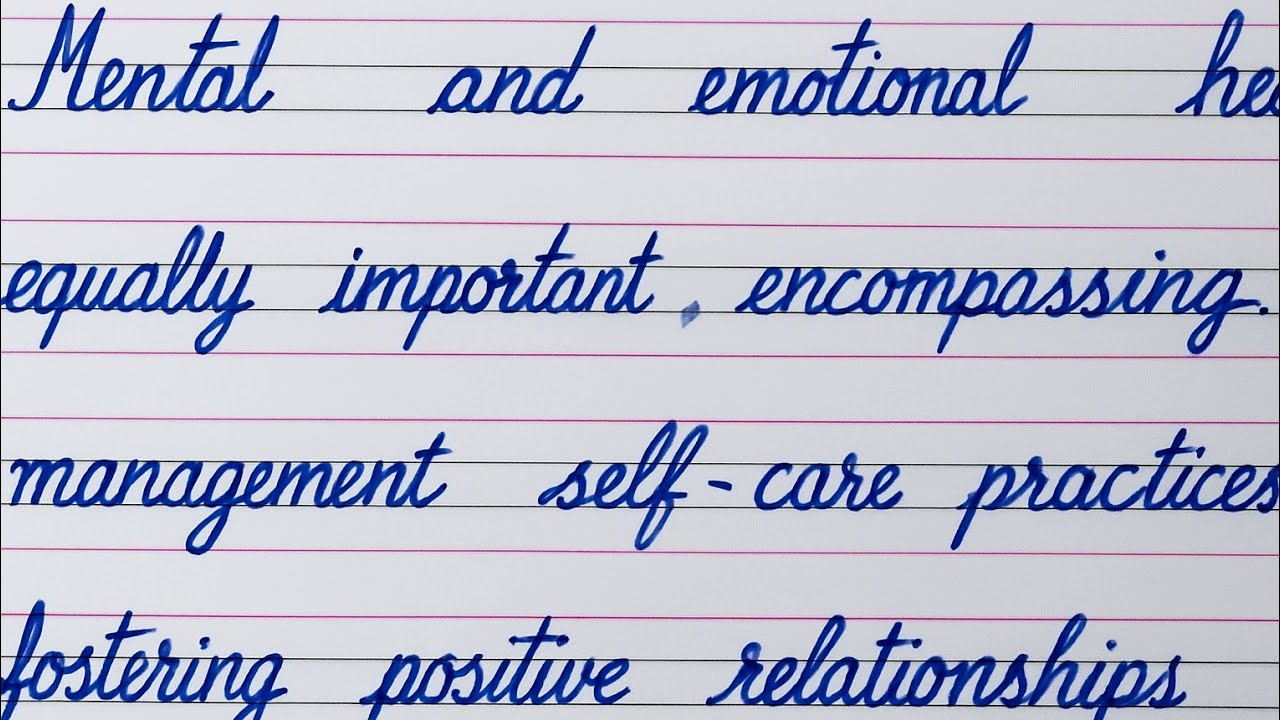 Mental and emotional
equally important, encompassing.
management self-care practices
fostering positive relationships